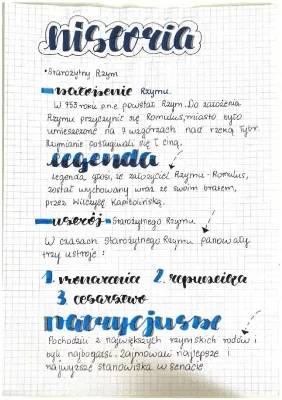 historia
• Starożytny Rzym
założenie Rzymu.
W 753 roku p.n.e powstał Rzym. Do założenia
Rzymu przyczynił się Romulus, miasto było
umieszczone na 7 wzgórzach nad rzeką Tybr.
Rzymianie posługiwali się Ł ciną.
legenda
Legenda głosi, że założyciel Rzymu - Romulus,
został wychowany wraz ze swoim bratem,
przez Wilczycę Kapitolińską.
ustrój - Starożytnego Rzymu
W czasach Starożytnego Rzymu panowały
trzy ustroje:
1. monarchia 2. republika
3. cesarstwo
patrycjusze
Pochodzili z największych rzymskich rodów i
byli najbogatsi. Zajmowali najlepsze i
najwyższe stanowiska w senacie